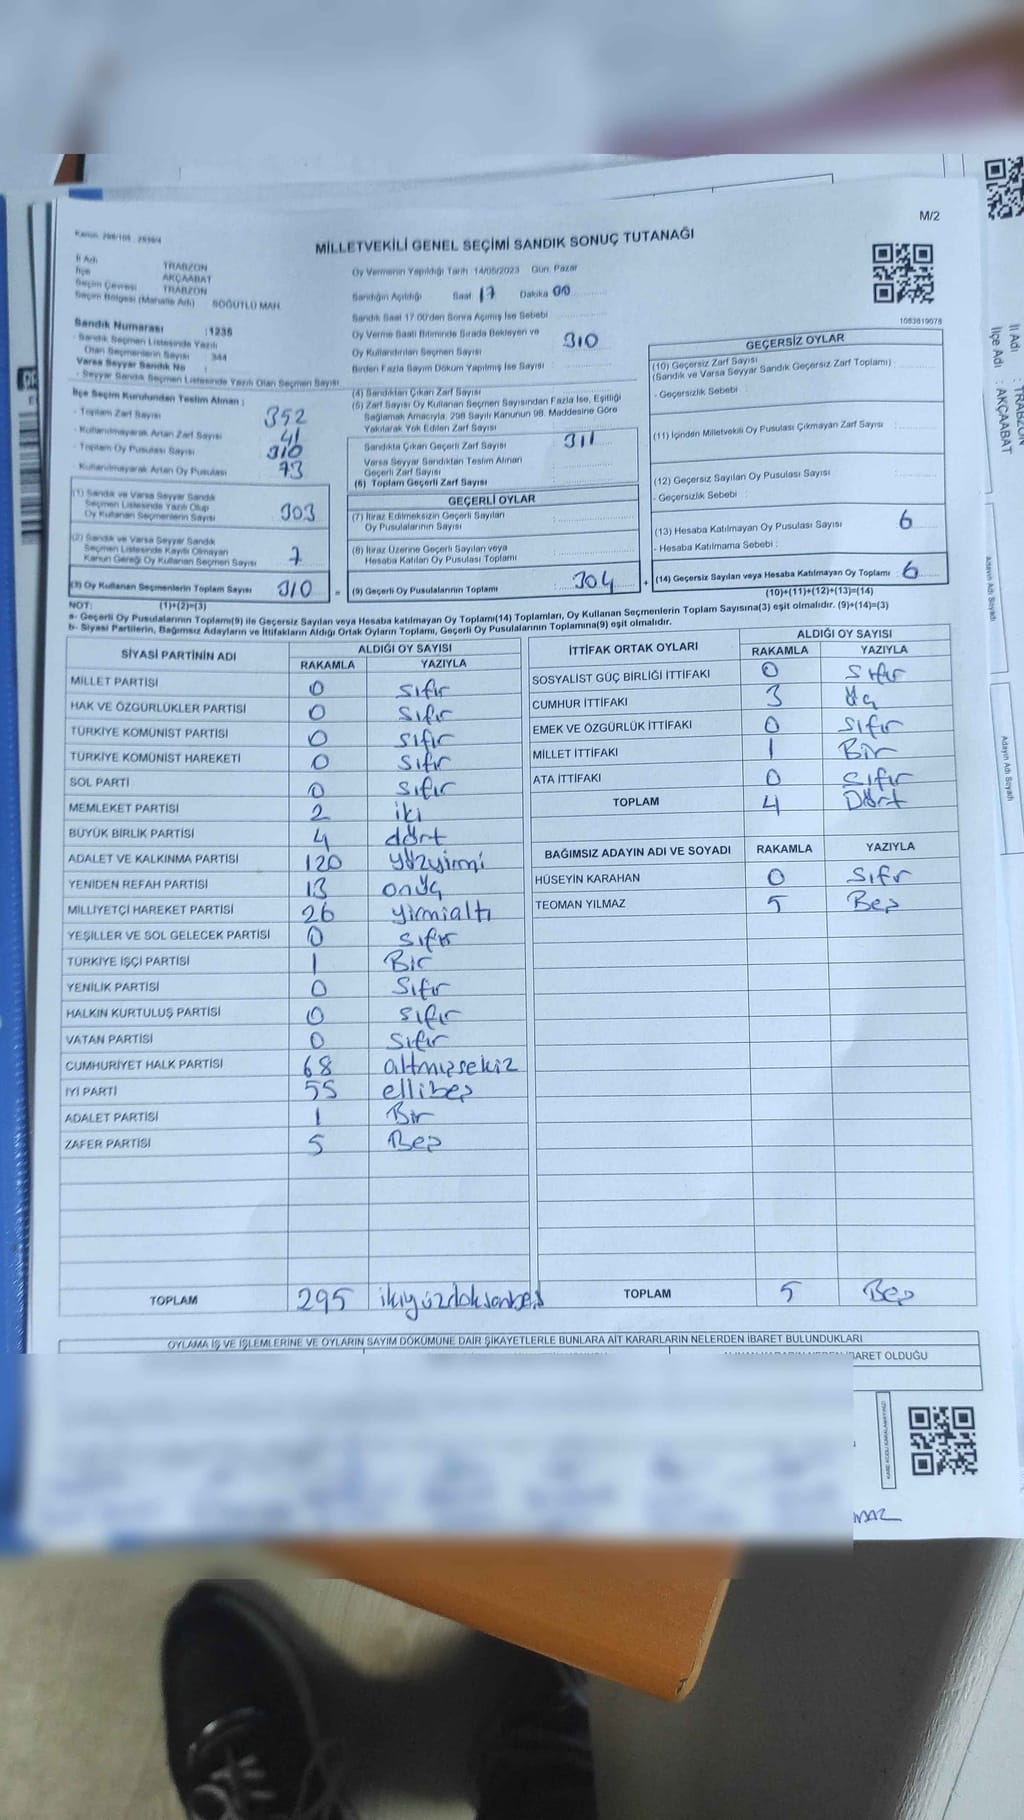 M/2
Kanun: 298/105 - 2839/4
MİLLETVEKİLİ GENEL SEÇİMİ SANDIK SONUÇ TUTANAĞI
İl Adı TRABZON
İlçe AKÇAABAT
Seçim Çevresi TRABZON
Seçim Bölgesi (Mahalle Adı) SÖĞÜTLÜ MAH.
Sandık Numarası :1236
- Sandık Seçmen Listesinde Yazılı
Olan Seçmenlerin Sayısı : 344
Varsa Seyyar Sandık No :
- Seyyar Sandık Seçmen Listesinde Yazılı Olan Seçmen Sayısı
İlçe Seçim Kurulundan Teslim Alınan ;
- Toplam Zarf Sayısı 352
- Kullanılmayarak Artan Zarf Sayısı 41
- Toplam Oy Pusulası Sayısı
- Kullanılmayarak Artan Oy Pusulası 73
(1) Sandık ve Varsa Seyyar Sandık
Seçmen Listesinde Yazılı Olup
Oy Kullanan Seçmenlerin Sayısı 303
(2) Sandık ve Varsa Seyyar Sandık
Seçmen Listesinde Kayıtlı Olmayan
Kanun Gereği Oy Kullanan Seçmen Sayısı 7
(3) Oy Kullanan Seçmenlerin Toplam Sayısı 310 =
Oy Vermenin Yapıldığı Tarih 14/05/2023 Gün: Pazar
Sandığın Açıldığı Saat 17 Dakika 00
Sandık Saat 17:00'den Sonra Açılmış İse Sebebi
Oy Verme Saati Bitiminde Sırada Bekleyen ve
Oy Kullandırılan Seçmen Sayısı 310
Birden Fazla Sayım Döküm Yapılmış İse Sayısı
(4) Sandıktan Çıkan Zarf Sayısı
(5) Zarf Sayısı Oy Kullanan Seçmen Sayısından Fazla İse, Eşitliği
Sağlamak Amacıyla; 298 Sayılı Kanunun 98. Maddesine Göre
Yakılarak Yok Edilen Zarf Sayısı
Sandıkta Çıkan Geçerli Zarf Sayısı 311
Varsa Seyyar Sandıktan Teslim Alınan
Geçerli Zarf Sayısı
(6) Toplam Geçerli Zarf Sayısı
GEÇERLİ OYLAR
(7) İtiraz Edilmeksizin Geçerli Sayılan
Oy Pusulalarının Sayısı
(8) İtiraz Üzerine Geçerli Sayılan veya
Hesaba Katılan Oy Pusulası Toplamı
(9) Geçerli Oy Pusulalarının Toplamı 304 +
1083819078
GEÇERSİZ OYLAR
(10) Geçersiz Zarf Sayısı
(Sandık ve Varsa Seyyar Sandık Geçersiz Zarf Toplamı)
- Geçersizlik Sebebi :
(11) İçinden Milletvekili Oy Pusulası Çıkmayan Zarf Sayısı
(12) Geçersiz Sayılan Oy Pusulası Sayısı
- Geçersizlik Sebebi :
(13) Hesaba Katılmayan Oy Pusulası Sayısı 6
- Hesaba Katılmama Sebebi :
(14) Geçersiz Sayılan veya Hesaba Katılmayan Oy Toplamı 6
(10)+(11)+(12)+(13)=(14)
NOT: (1)+(2)=(3)
a- Geçerli Oy Pusulalarının Toplamı(9) ile Geçersiz Sayılan veya Hesaba katılmayan Oy Toplamı(14) Toplamları, Oy Kullanan Seçmenlerin Toplam Sayısına(3) eşit olmalıdır. (9)+(14)=(3)
b- Siyasi Partilerin, Bağımsız Adayların ve İttifakların Aldığı Ortak Oyların Toplamı, Geçerli Oy Pusulalarının Toplamına(9) eşit olmalıdır.
SİYASİ PARTİNİN ADI ALDIĞI OY SAYISI
RAKAMLA YAZIYLA
MİLLET PARTİSİ 0 sıfır
HAK VE ÖZGÜRLÜKLER PARTİSİ 0 sıfır
TÜRKİYE KOMÜNİST PARTİSİ 0 sıfır
TÜRKİYE KOMÜNİST HAREKETİ 0 sıfır
SOL PARTİ 0 sıfır
MEMLEKET PARTİSİ 2 iki
BÜYÜK BİRLİK PARTİSİ 4 dört
ADALET VE KALKINMA PARTİSİ 120 yüzyirmi
YENİDEN REFAH PARTİSİ 13 onüç
MİLLİYETÇİ HAREKET PARTİSİ 26 yirmialtı
YEŞİLLER VE SOL GELECEK PARTİSİ 0 sıfır
TÜRKİYE İŞÇİ PARTİSİ 1 Bir
YENİLİK PARTİSİ 0 Sıfır
HALKIN KURTULUŞ PARTİSİ 0 sıfır
VATAN PARTİSİ 0 Sıfır
CUMHURİYET HALK PARTİSİ 68 altmışsekiz
İYİ PARTİ 55 ellibeş
ADALET PARTİSİ 1 Bir
ZAFER PARTİSİ 5 Beş
TOPLAM 295 ikiyüzdoksanbeş
İTTİFAK ORTAK OYLARI ALDIĞI OY SAYISI
RAKAMLA YAZIYLA
SOSYALİST GÜÇ BİRLİĞİ İTTİFAKI 0 sıfır
CUMHUR İTTİFAKI 3 üç
EMEK VE ÖZGÜRLÜK İTTİFAKI 0 sıfır
MİLLET İTTİFAKI 1 Bir
ATA İTTİFAKI 0 sıfır
TOPLAM 4 Dört
BAĞIMSIZ ADAYIN ADI VE SOYADI RAKAMLA YAZIYLA
HÜSEYİN KARAHAN 0 Sıfır
TEOMAN YILMAZ 5 Beş
TOPLAM 5 Beş
OYLAMA İŞ VE İŞLEMLERİNE VE OYLARIN SAYIM DÖKÜMÜNE DAİR ŞİKAYETLERLE BUNLARA AİT KARARLARIN NELERDEN İBARET BULUNDUKLARI
İBARET OLDUĞU
İl Adı : TRABZON
İlçe Adı : AKÇAABAT
Adayın Adı Soyadı
Adayın Adı Soyadı